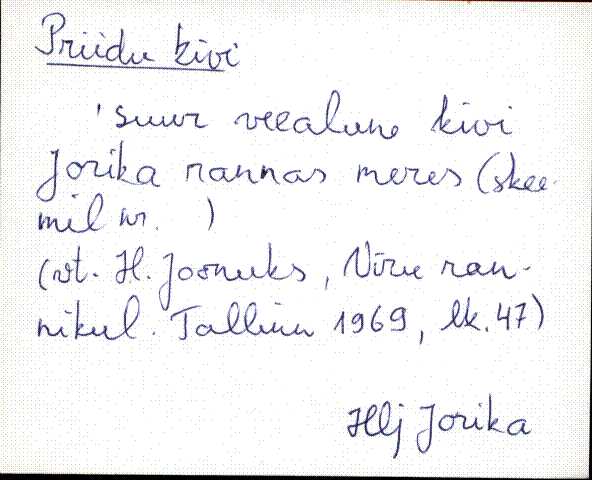 Priidu kivi
'suur veealune kivi
Jorika rannas meres (skee-
mil nr. )
(vt. H. Joonuks, Viru ran-
nikul. Tallinn 1969, lk. 47)
Hlj Jorika